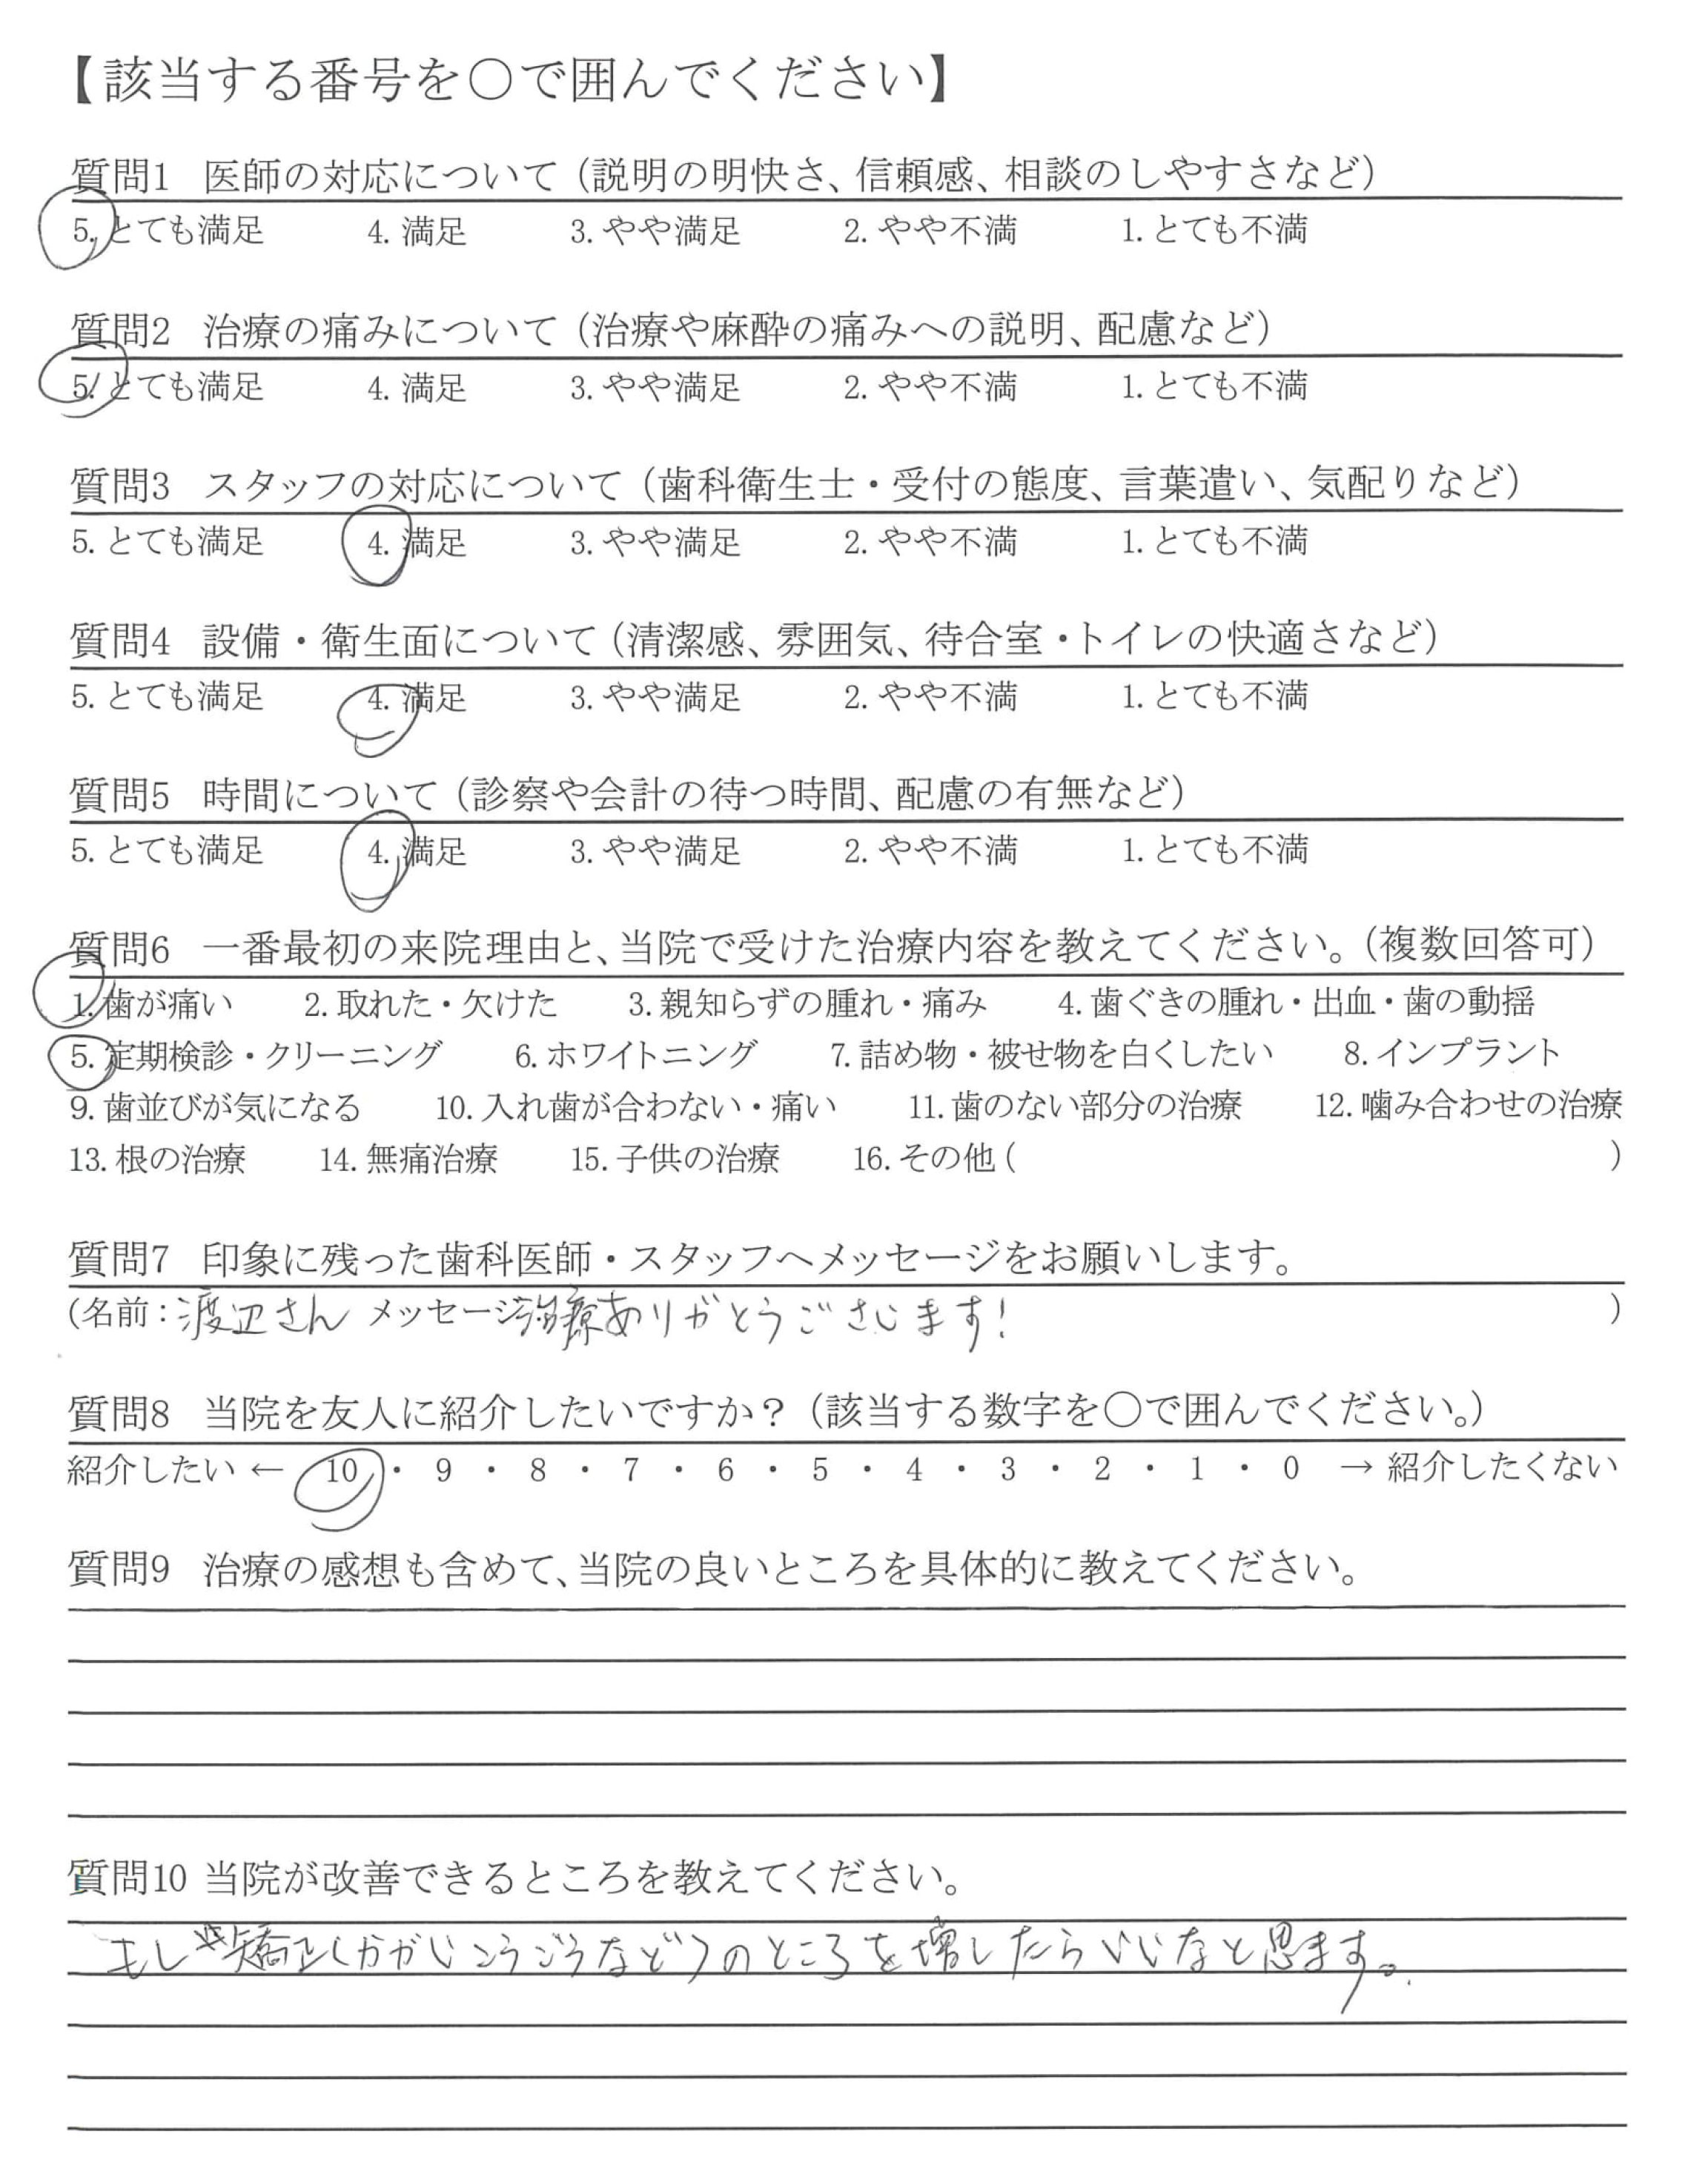 【該当する番号を○で囲んでください】
質問1 医師の対応について（説明の明快さ、信頼感、相談のしやすさなど）
5. とても満足 4. 満足 3. やや満足 2. やや不満 1. とても不満
質問2 治療の痛みについて（治療や麻酔の痛みへの説明、配慮など）
5. とても満足 4. 満足 3. やや満足 2. やや不満 1. とても不満
質問3 スタッフの対応について（歯科衛生士・受付の態度、言葉遣い、気配りなど）
5. とても満足 4. 満足 3. やや満足 2. やや不満 1. とても不満
質問4 設備・衛生面について（清潔感、雰囲気、待合室・トイレの快適さなど）
5. とても満足 4. 満足 3. やや満足 2. やや不満 1. とても不満
質問5 時間について（診察や会計の待つ時間、配慮の有無など）
5. とても満足 4. 満足 3. やや満足 2. やや不満 1. とても不満
質問6 一番最初の来院理由と、当院で受けた治療内容を教えてください。（複数回答可）
1. 歯が痛い 2. 取れた・欠けた 3. 親知らずの腫れ・痛み 4. 歯ぐきの腫れ・出血・歯の動揺
5. 定期検診・クリーニング 6. ホワイトニング 7. 詰め物・被せ物を白くしたい 8. インプラント
9. 歯並びが気になる 10. 入れ歯が合わない・痛い 11. 歯のない部分の治療 12. 噛み合わせの治療
13. 根の治療 14. 無痛治療 15. 子供の治療 16. その他（ ）
質問7 印象に残った歯科医師・スタッフへメッセージをお願いします。
（名前：渡辺さん メッセージ 治療ありがとうございます！ ）
質問8 当院を友人に紹介したいですか？（該当する数字を○で囲んでください。）
紹介したい ← 10 ・ 9 ・ 8 ・ 7 ・ 6 ・ 5 ・ 4 ・ 3 ・ 2 ・ 1 ・ 0 → 紹介したくない
質問9 治療の感想も含めて、当院の良いところを具体的に教えてください。
質問10 当院が改善できるところを教えてください。
もし 矯正（かがいこうごうなど）のところを増したらいいなと思ます。